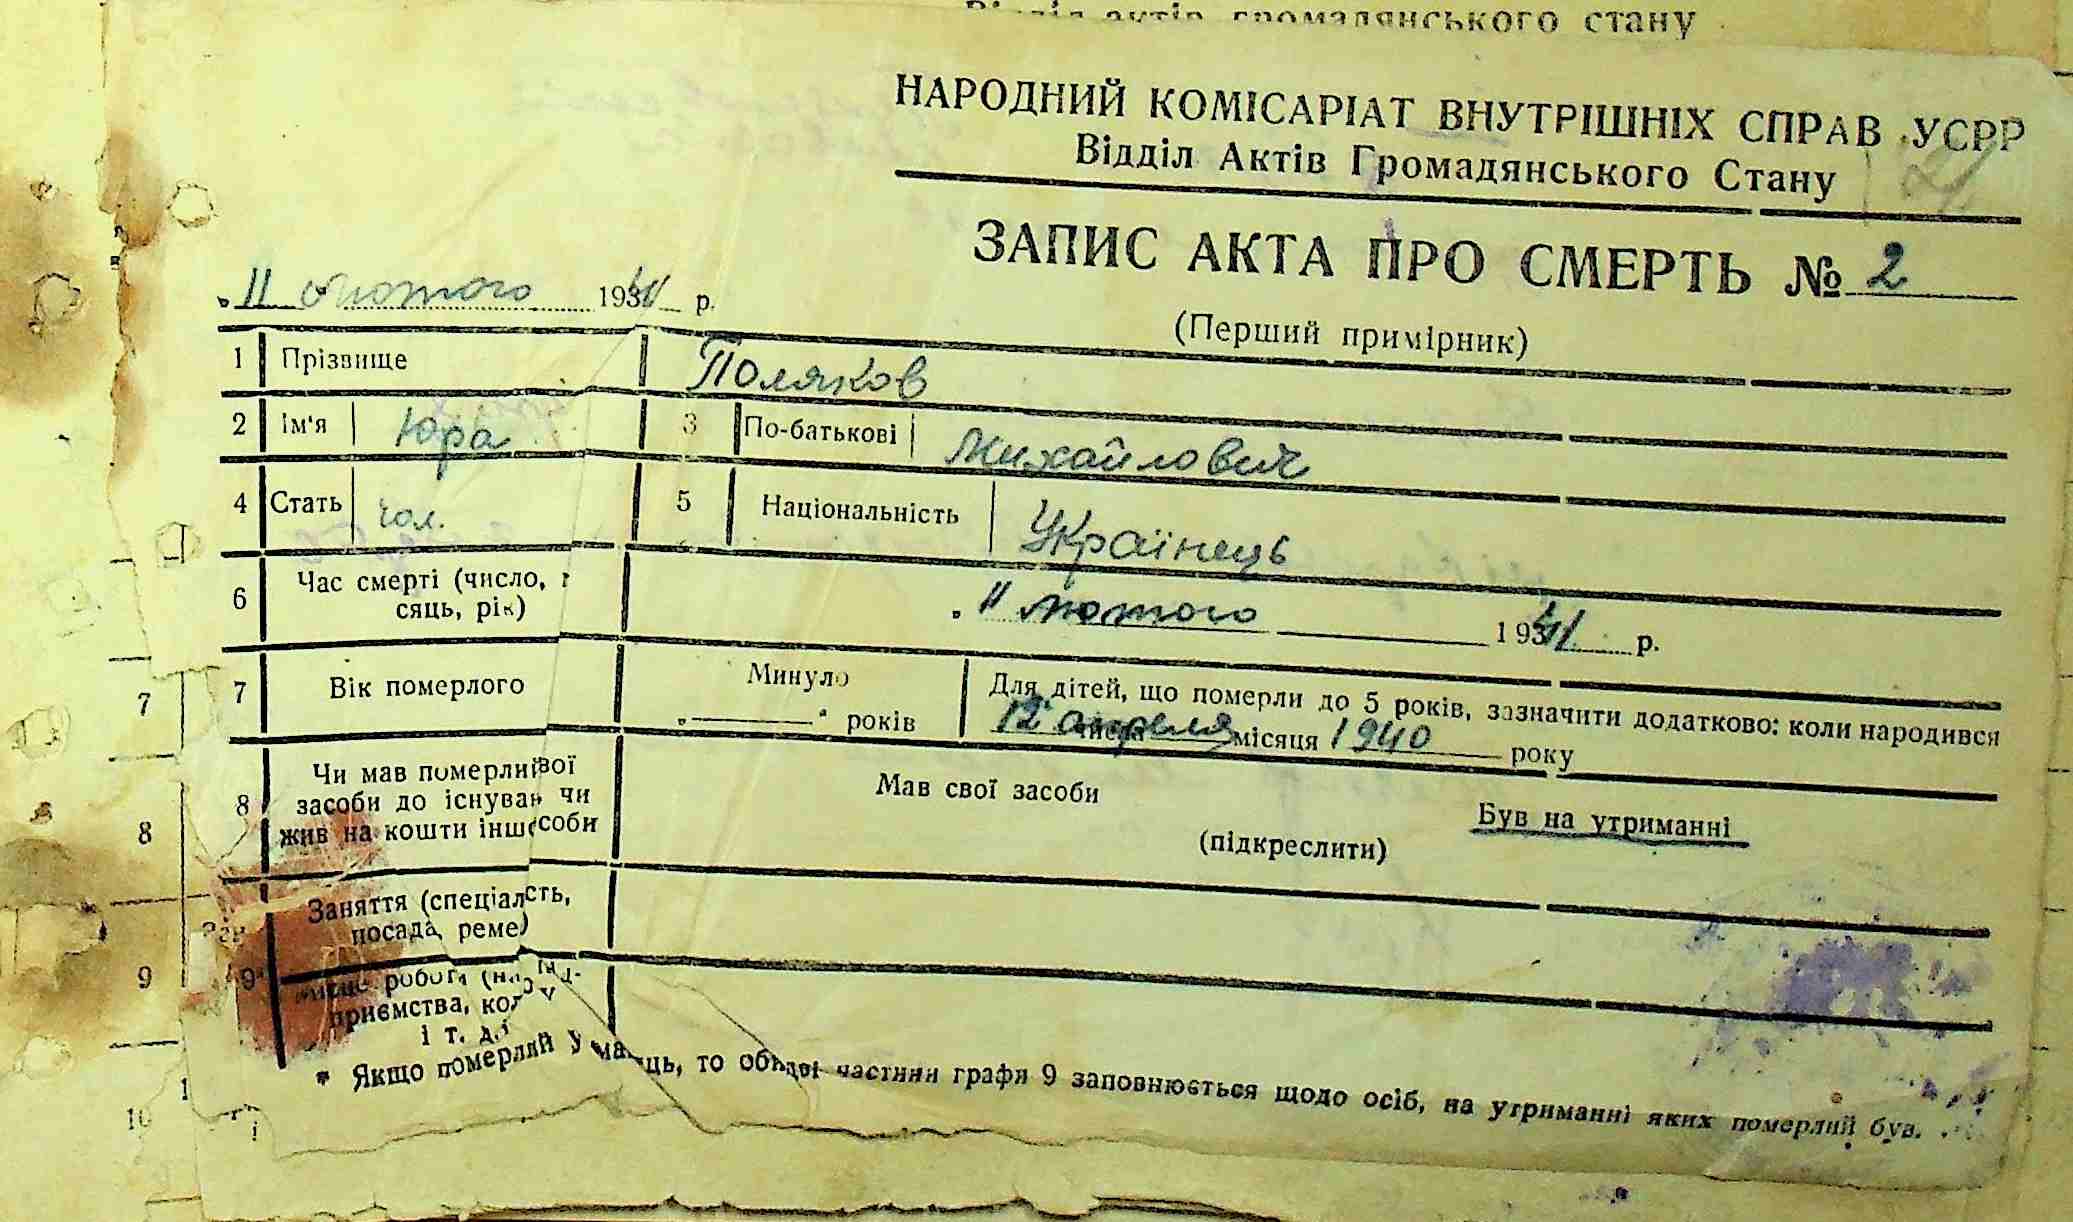 Відділ актів громадянського стану
НАРОДНИЙ КОМІСАРІАТ ВНУТРІШНІХ СПРАВ УСРР
Відділ Актів Громадянського Стану
ЗАПИС АКТА ПРО СМЕРТЬ № 2
(Перший примірник)
„ 11 лютого 1941 р.
1 Прізвище Поляков
2 Ім'я Юра 3 По-батькові Михайлович
4 Стать чол. 5 Національність Українець
6 Час смерті (число, мі
сяць, рік) „ 11 лютого 1941 р.
7 7 Вік померлого Минуло
„ “ років
Для дітей, що померли до 5 років, зазначити додатково: коли народився
12 апреля числа місяця 1940 року
8 8 Чи мав померлий свої
засоби до існування чи
жив на кошти іншої особи
Мав свої засоби Був на утриманні
(підкреслити)
9 9 Заняття (спеціальність,
посада, ремесло)
Місце роботи (назва під-
приємства, колгоспу
і т. д.)
* Якщо померлий утриманець, то обидві частини графи 9 заповнюється щодо осіб, на утриманні яких померлий був.
10